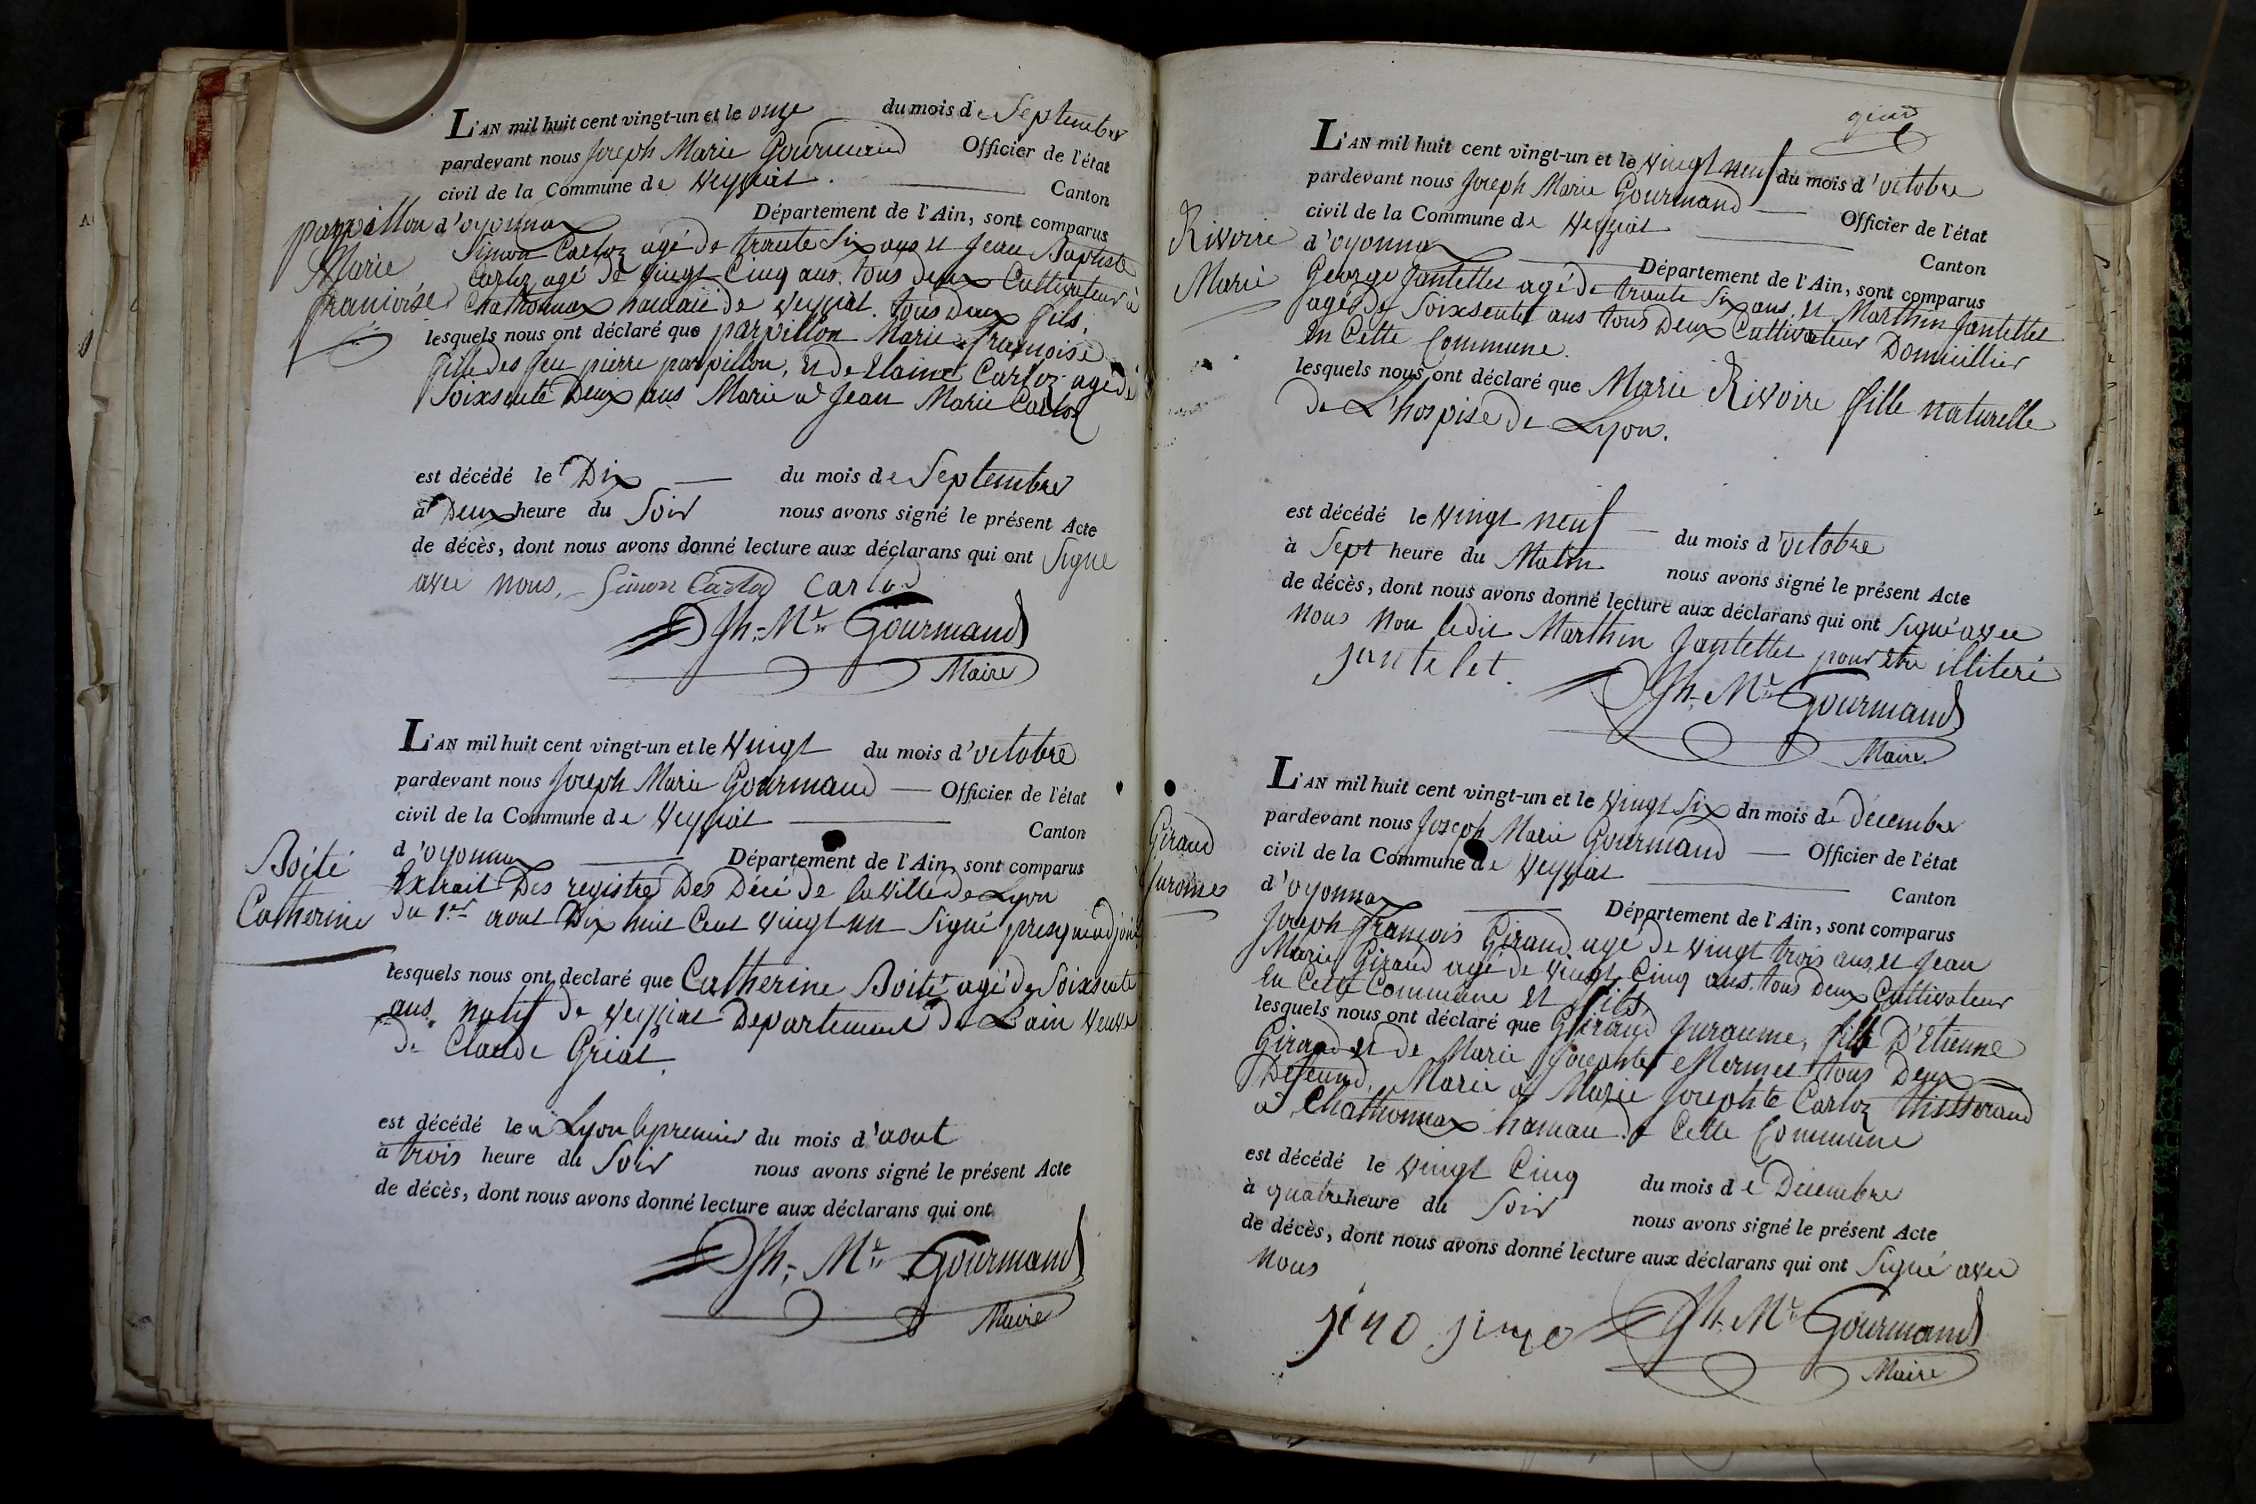 L'AN mil huit cent vingt-un et le onze du mois de Septembre
pardevant nous Joseph Marie Gourmand Officier de l'état
civil de la Commune de Veyziat. Canton
d'oyonnax Département de l'Ain, sont comparus
parpillon
Marie
francoise
Simon Carloz agé de trante Six ans et Jean Baptiste
Carloz agé de vingt Cinq ans. tous deux Cultivateur à
Chathonnax hamaü de Veyziat. tous deux fils.
lesquels nous ont déclaré que parpillon Marie francoise
fille des feu pierre parpillon, et de Claine Carloz agé de
Soixsente Deux ans Marie a Jean Marie Carloz
est décédé le Dix du mois de Septembre
à Deux heure du Soir nous avons signé le présent Acte
de décès, dont nous avons donné lecture aux déclarans qui ont Signe
avec nous, Simon Carloz Carloz
Jh. Mie Gourmand
Maire
L'AN mil huit cent vingt-un et le Vingt du mois d'octobre
pardevant nous Joseph Marie Gourmand Officier de l'état
civil de la Commune de Veyziat Canton
d'oyonnax Département de l'Ain, sont comparus
Boité
Catherine
Extrait Des registre Des Décé de la ville de Lyon
du 1er aout Dix huit Cent vingt un Signé
lesquels nous ont declaré que Catherine Boité agé de Soixsente
ans natif de Veyziat Departement de Lain veuve
de Claude Griat.
est décédé le à Lyon le premier du mois d'aout
à trois heure du Soir nous avons signé le présent Acte
de décès, dont nous avons donné lecture aux déclarans qui ont
Jh. Mie Gourmand
Maire
L'AN mil huit cent vingt-un et le vingt neuf du mois d'octobre
pardevant nous Joseph Marie Gourmand Officier de l'état
civil de la Commune de Veyziat Canton
d'oyonnax Département de l'Ain, sont comparus
Rivoire
Marie
George Jantellet agé de trante Six ans, et Marthin Jantellet
agé de Soixsentes ans tous Deux Cultivateur Domicillier
en Cette Commune.
lesquels nous ont déclaré que Marie Rivoire fille naturelle
de L'hospise de Lyon.
est décédé le vingt neuf du mois d'octobre
à Sept heure du Matin nous avons signé le présent Acte
de décès, dont nous avons donné lecture aux déclarans qui ont Signé avec
nous non ledit Marthin Jantellet pour etre illiteré
jantelet.
Jh. Mie Gourmand
Maire.
L'AN mil huit cent vingt-un et le vingt Six dn mois de decembre
pardevant nous Joseph Marie Gourmand Officier de l'état
civil de la Commune de Veyziat Canton
d'oyonnax Département de l'Ain, sont comparus
Giraud
Joseph François Giraud agé de vingt trois ans, et Jean
Marie Giraud agé de vingt Cinq ans. tous deux Cultivateur
en Cette Commune et fils,
lesquels nous ont déclaré que Giraud Juraume, fils D'Etienne
Giraud et de Marie Josephte Mermet tous Deux
Defeund, Marie a Marie Josephte Carloz thisserand
a Chathonnax hamau de Cette Commune
est décédé le vingt Cinq du mois de Décembre
à quatre heure du Soir nous avons signé le présent Acte
de décès, dont nous avons donné lecture aux déclarans qui ont Signé avec
nous
Jh. Mie Gourmand
Maire